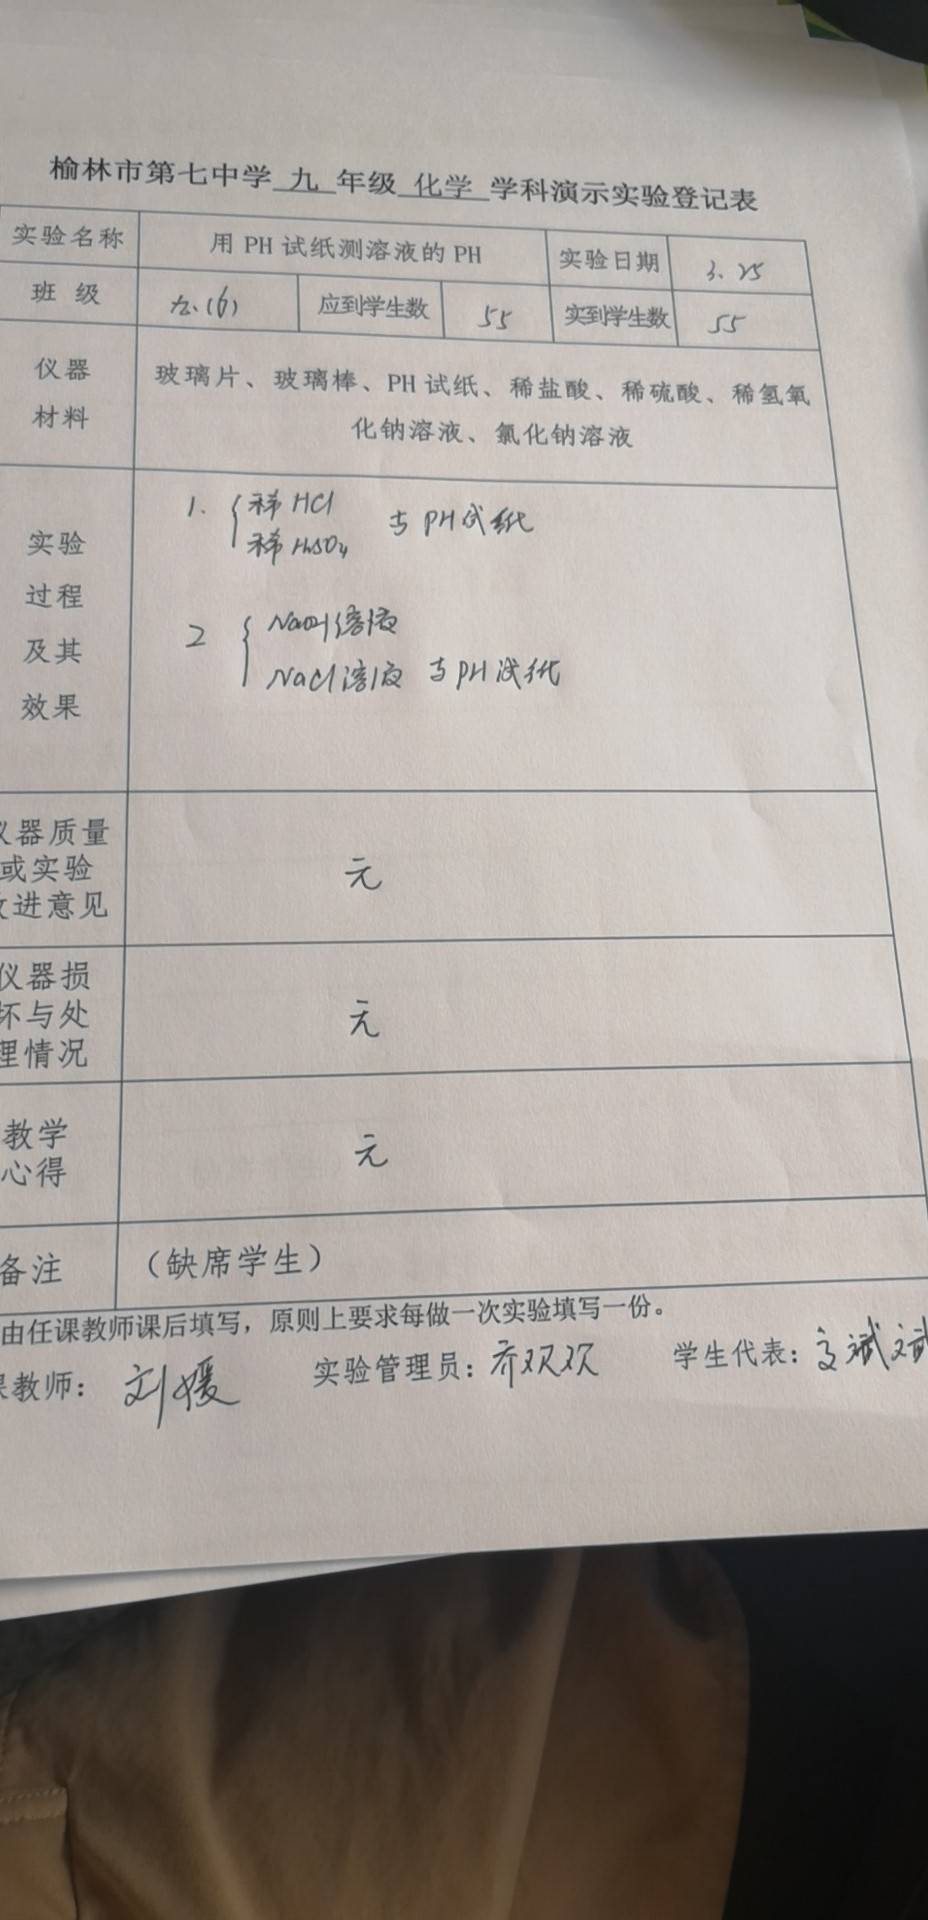 榆林市第七中学 九 年级 化学 学科演示实验登记表
实验名称 用 PH 试纸测溶液的 PH 实验日期 3.25
班 级 九.(6) 应到学生数 55 实到学生数 55
仪器
材料
玻璃片、玻璃棒、PH 试纸、稀盐酸、稀硫酸、稀氢氧
化钠溶液、氯化钠溶液
实验
过程
及其
效果
1. { 稀 HCl
稀 H₂SO₄ 与 PH试纸
2 { NaOH溶液
NaCl溶液 与 PH试纸
仪器质量
或实验
改进意见
无
仪器损
坏与处
理情况
无
教学
心得
无
备注 （缺席学生）
由任课教师课后填写，原则上要求每做一次实验填写一份。
课教师： 刘媛 实验管理员：乔双双 学生代表：